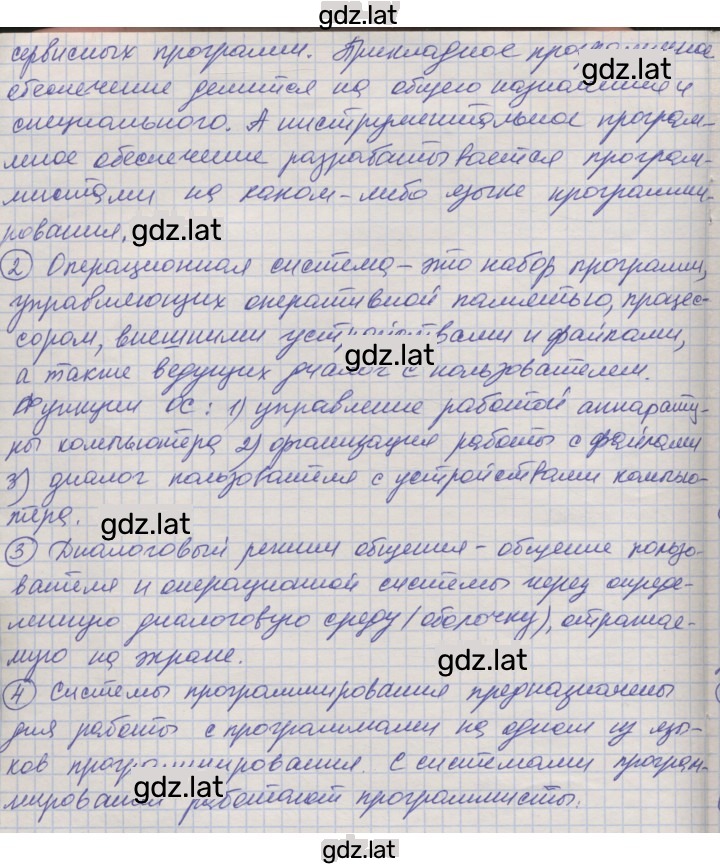 gdz.lat
сервисных программ. Прикладное программное
gdz.lat
обеспечение делится на общего назначения и
специального. А инструментальное програм-
мное обеспечение разрабатывается програм-
мистами на каком-либо языке программи-
рования.
gdz.lat
② Операционная система – это набор программ,
управляющих оперативной памятью, процес-
сором, внешними устройствами и файлами,
gdz.lat
а также ведущих диалог с пользователем.
Функции ОС: 1) управление работой аппарату-
ры компьютера 2) организация работы с файлами
3) диалог пользователя с устройствами компью-
тера.
gdz.lat
③ Диалоговый режим общения – общение пользо-
вателя и операционной системы через опреде-
ленную диалоговую среду (оболочку), отражае-
мую на экране.
gdz.lat
④ Системы программирования предназначены
для работы с программами на одном из язы-
ков программирования. С системами програм-
gdz.lat
мирования работают программисты.
gdz.lat